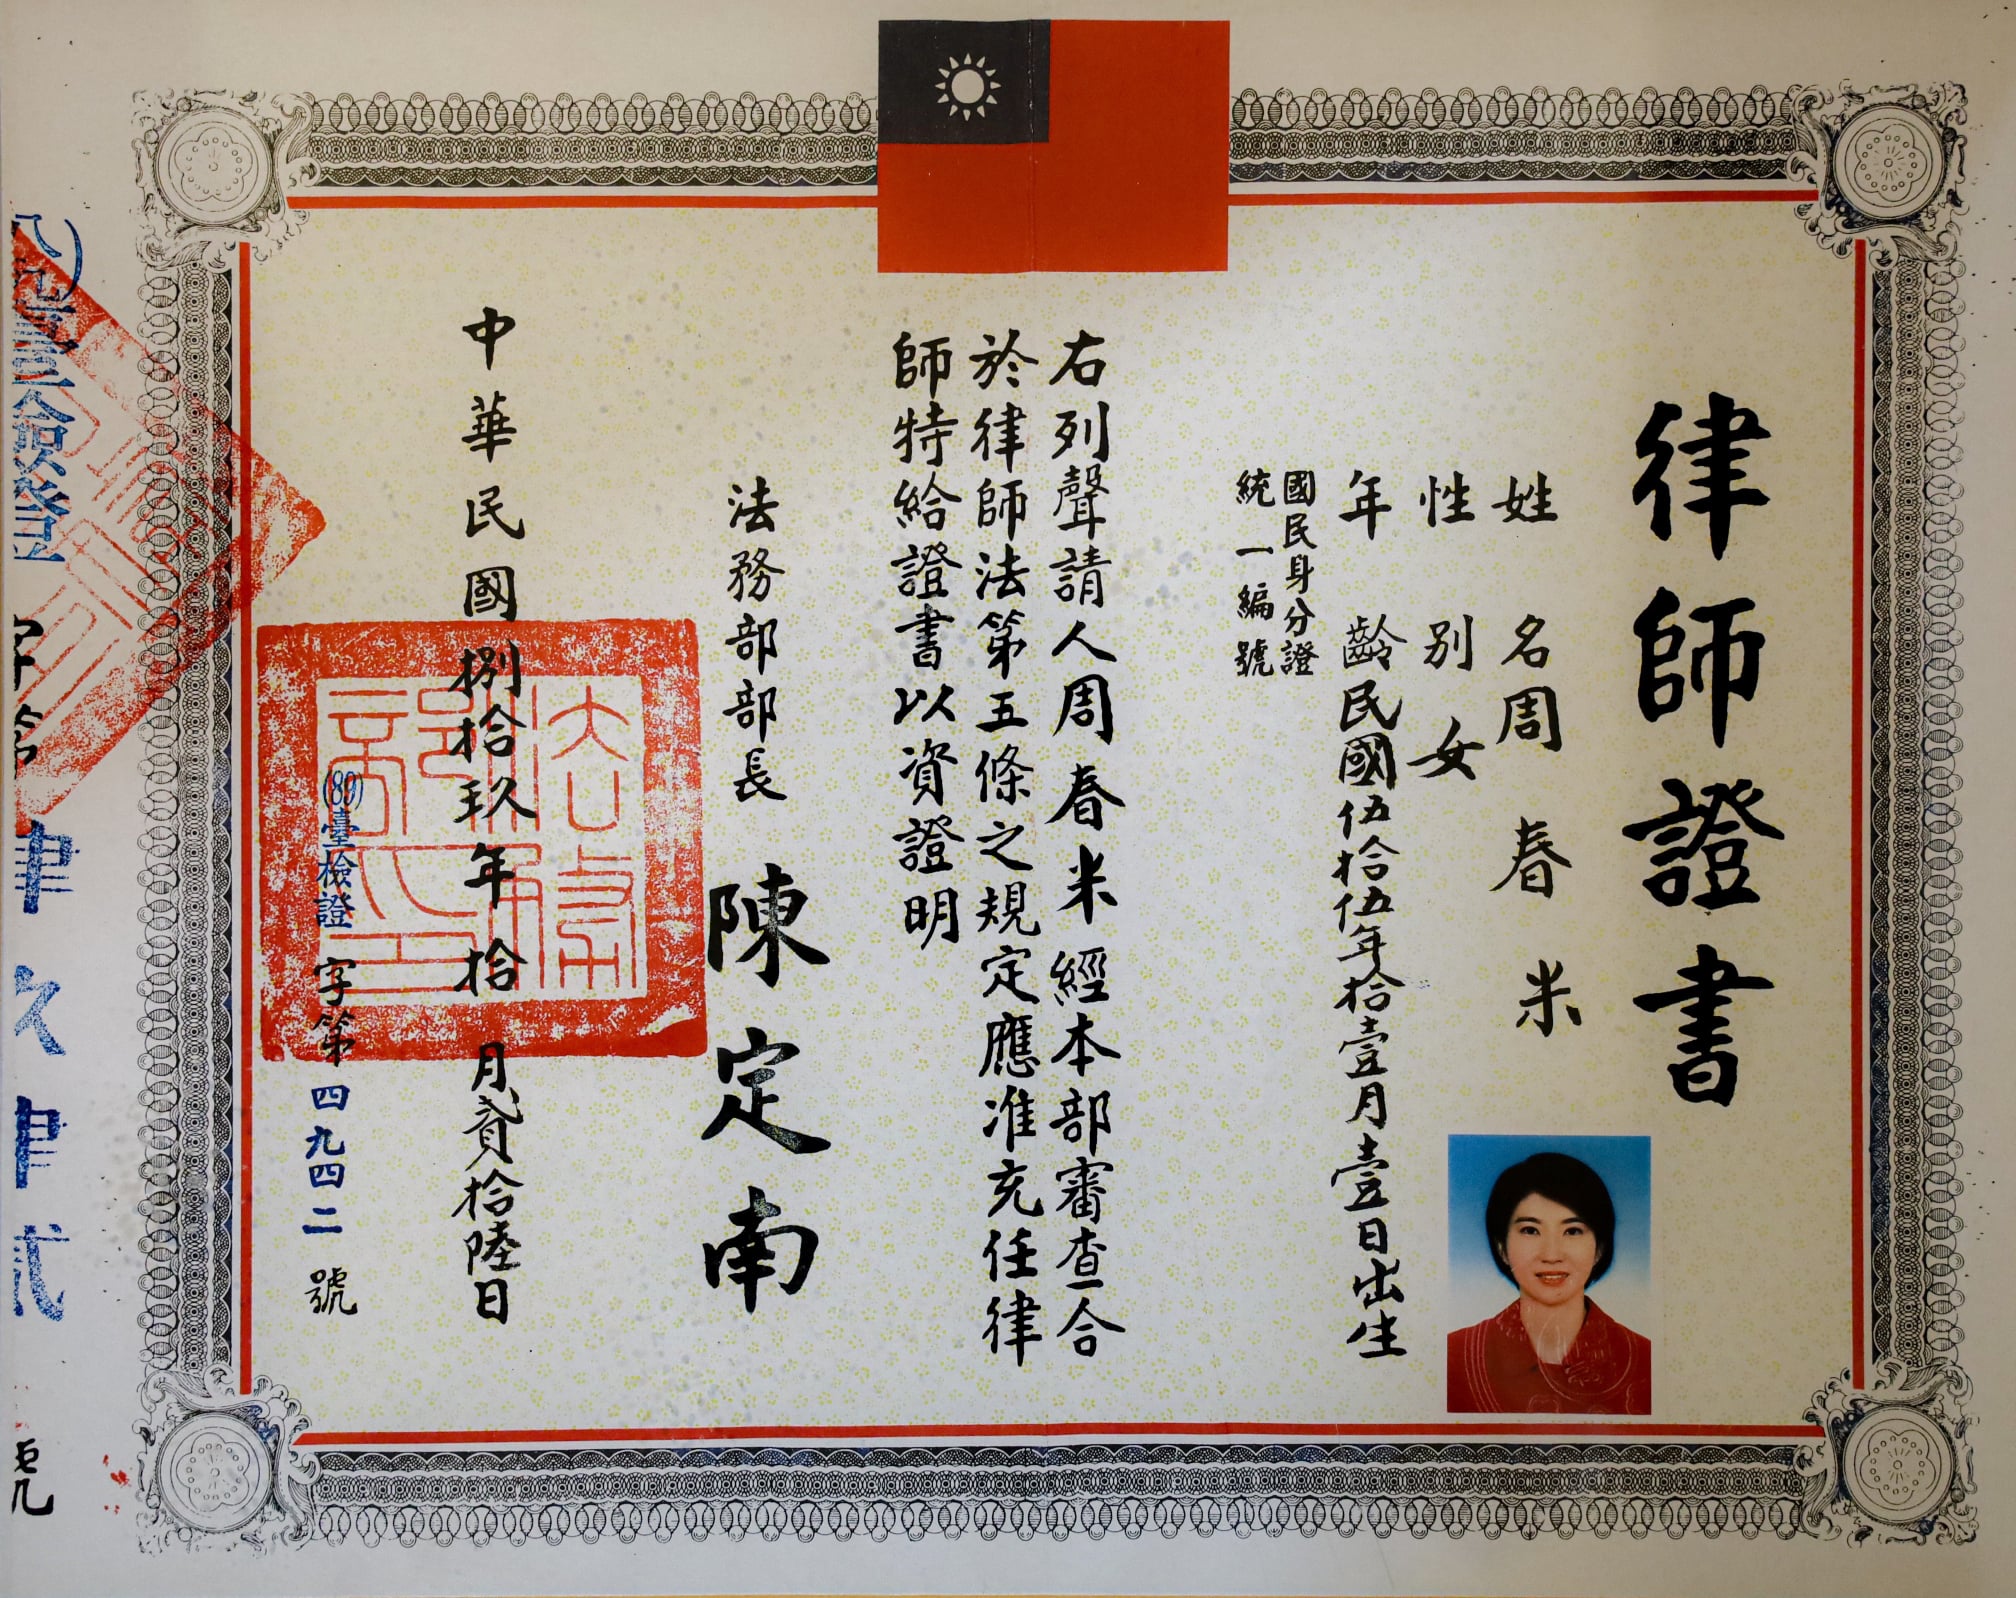 律師證書
姓名周春米
性別女
年齡民國伍拾伍年拾壹月壹日出生
國民身分證
統一編號
右列聲請人周春米經本部審查合
於律師法第五條之規定應准充任律
師特給證書以資證明
法務部部長 陳定南
中華民國捌拾玖年拾月貳拾陸日
法務部印
(89)臺檢證字第四九四二號